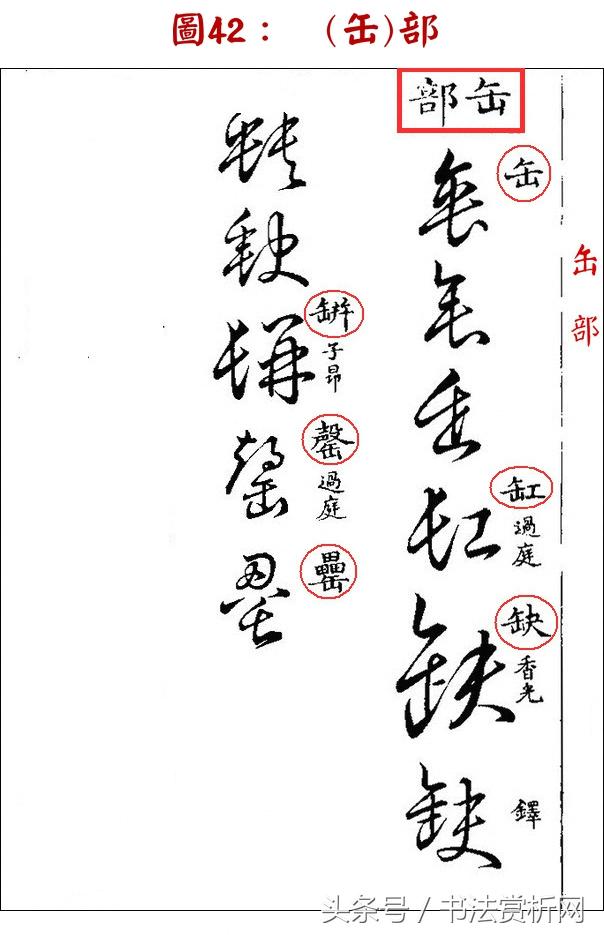 圖42： （缶)部
缶部
缶
缸
過庭
缺
香光
鐸
缾
子昂
罄
過庭
罍
缶部
头条号／书法赏析网